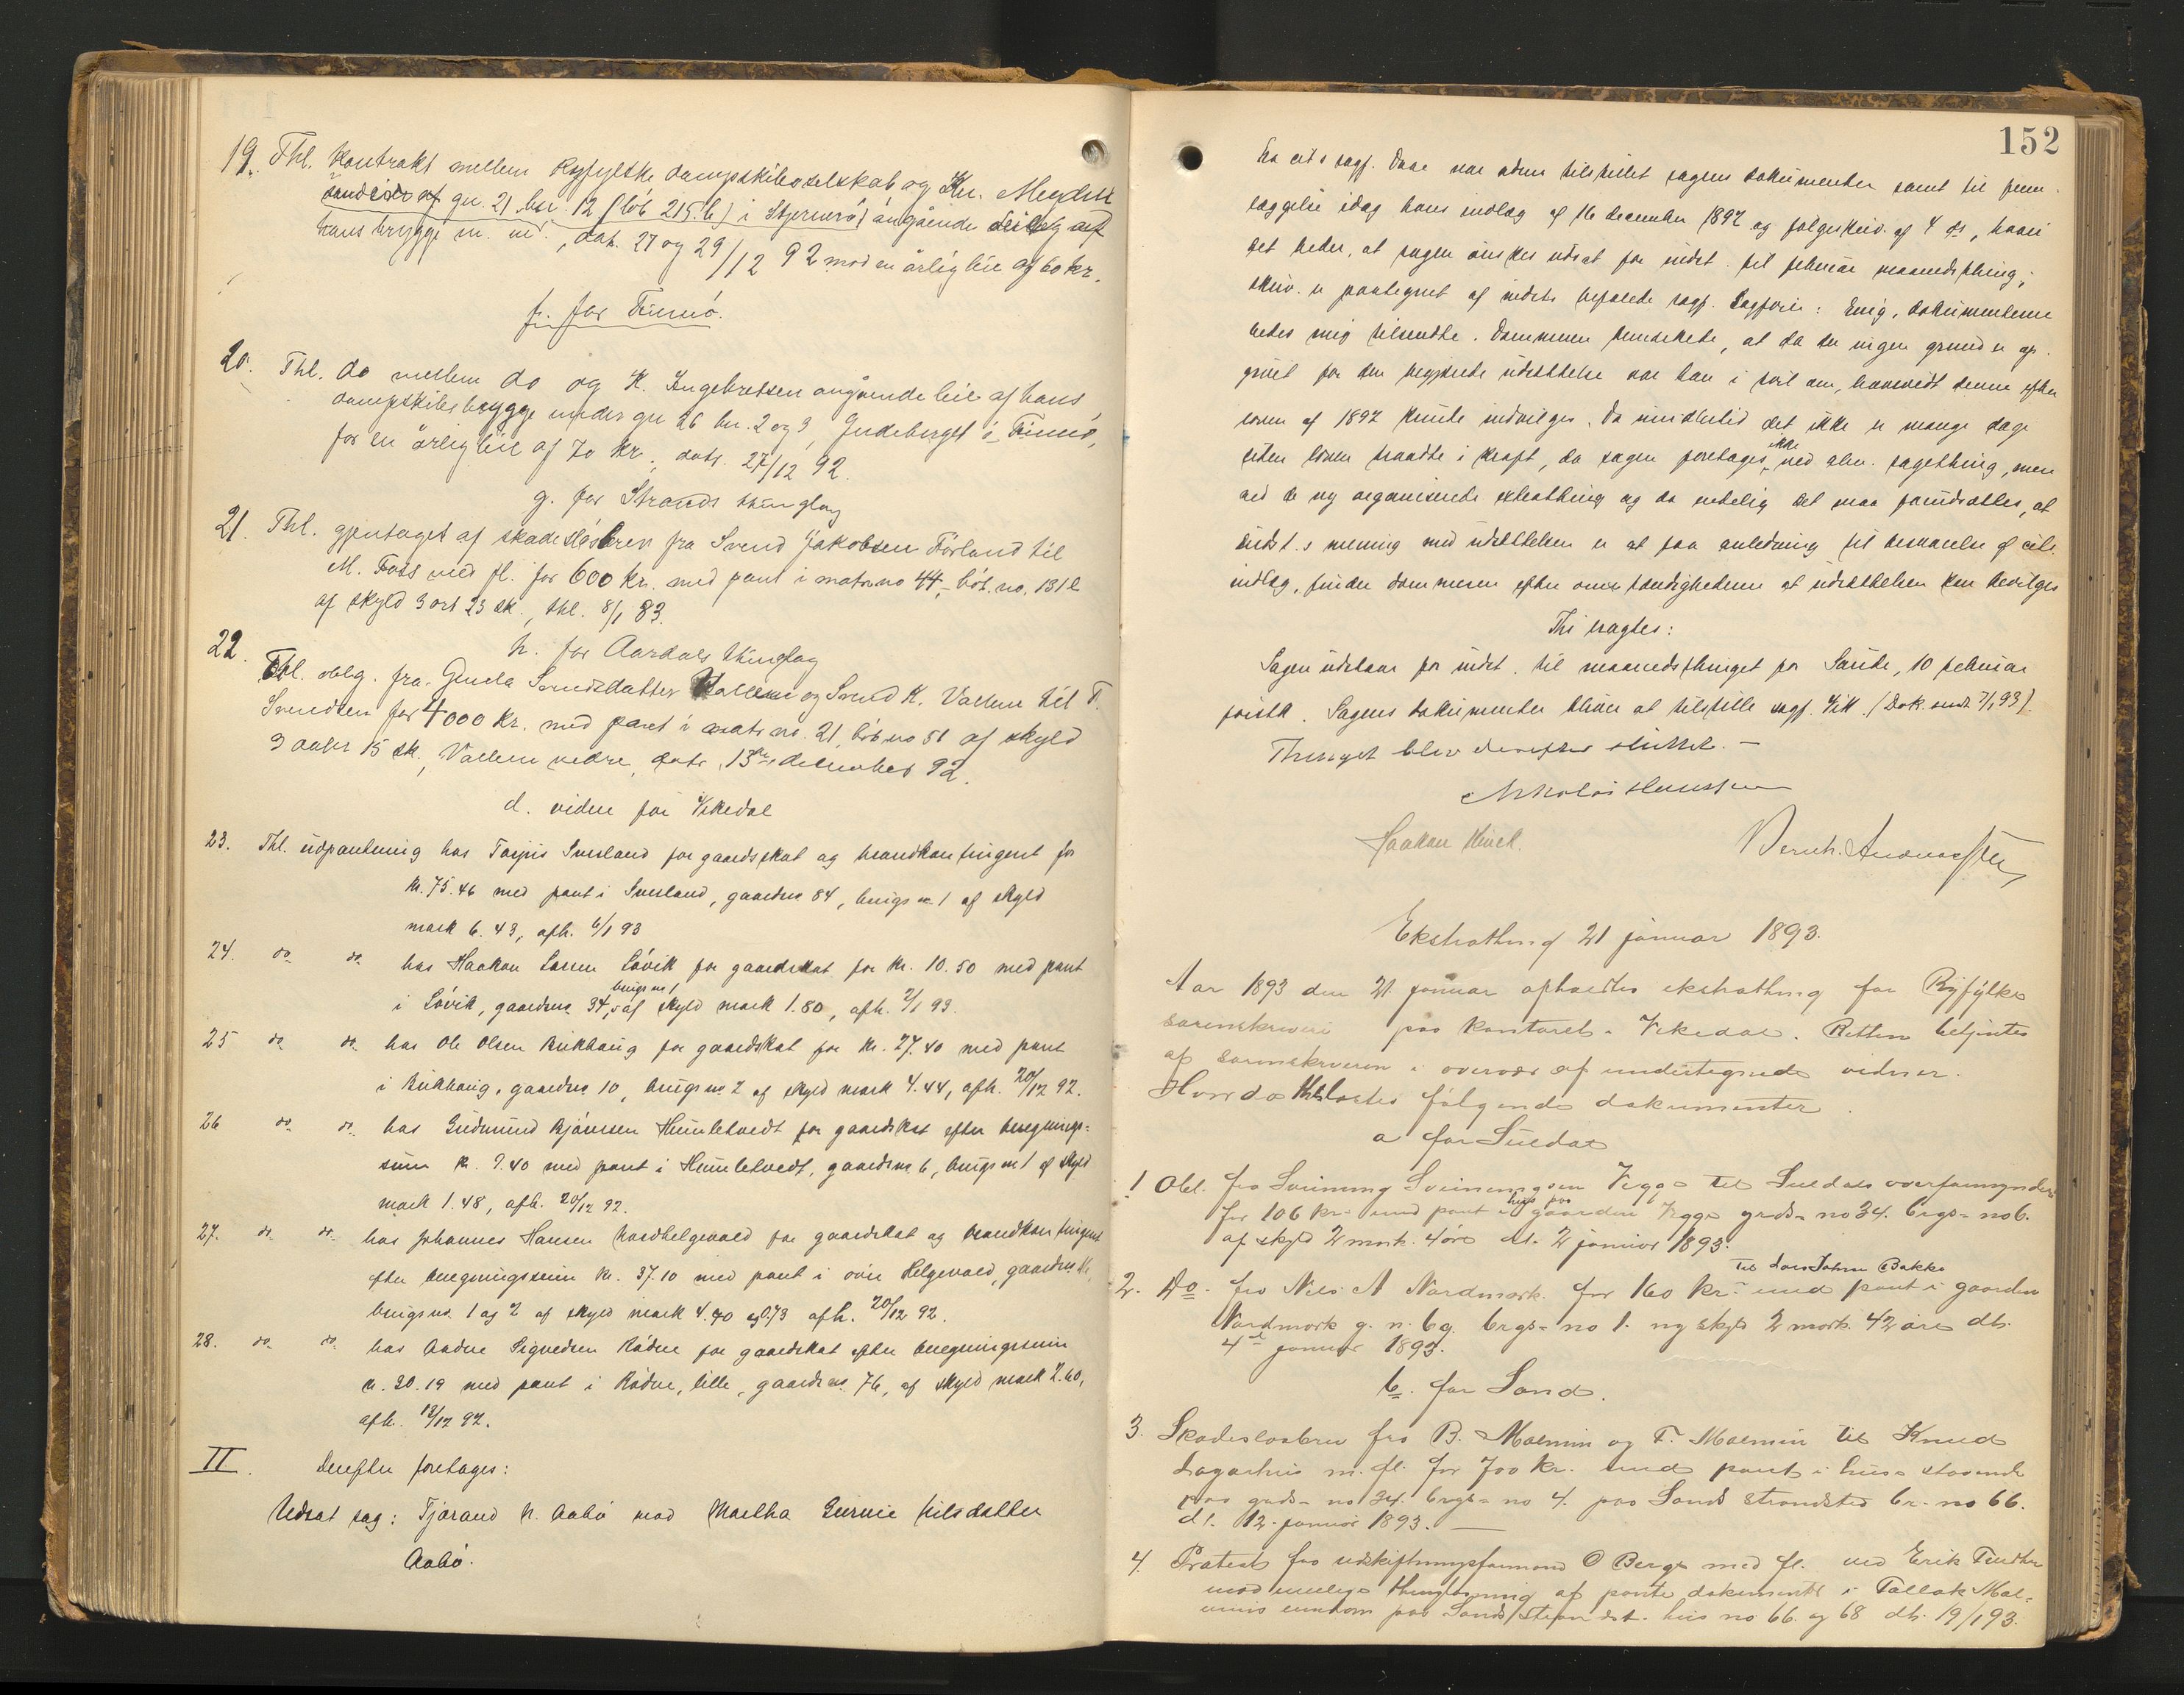 19. Thl. kontrakt mellem Ryfylke dampskibsselskab og Kr.
gn. 21 bn. 12 (løb 215 b) i Stjernerø angående leie af
hans brygge m. m., dat. 27 og 29/12 92 mod en årlig leie af 60 kr.
f. for Finnø.
20. Thl. do mellem do og K. Ingebretsen angående leie af hans
dampskibsbrygge under gn 26 bn. 2 og 3, Judeberget i Finnø,
for en årlig leie af 70 kr., dat. 27/12 92.
g. for Strands thinglag
21. Thl. gjentaget af skadesløsbrev fra Svend Jakobsen Førland til
M. Foss med fl. for 600 kr. med pant i matr. no 44, løb. no. 131 b
af skyld 3 ort 23 sk., thl. 8/1 83.
h. for Aardals thinglag
22. Thl. oblg. fra Gunla Svendsdatter Vallem og Svend K. Vallem til T.
Svendsen for 4000 kr. med pant i matr. no. 21, løb no 51 af skyld
3 daler 15 sk., Vallem nedre, dat. 13de december 92.
d. videre for Vikedal
23. Thl. udpantning hos Torjus Svesland for gaardsskat og brandkontingent for
kr. 75.46 med pant i Svesland, gaardno 84, brugsno 1 af skyld
mark 6.43, afh. 6/1 93
24. do do hos Haakon Larsen Løvik for gaardskat for kr. 10.50 med pant
brugsno 1
i Løvik, gaardno 34, af skyld mark 1.80, afh. 2/1 93.
25 do do hos Ole Olsen Birkhaug for gaardskat for kr. 27.40 med pant
i Birkhaug, gaardno 10, brugsno 2 af skyld mark 4.44, afh. 20/12 92.
26 do do hos Gudmund Bjørnsen Humletvedt for gaardskat efter beregnings-
sum kr. 9.40 med pant i Humletvedt, gaardsno 6, brugsno 1 af skyld
mark 1.48, afh. 20/12 92.
27. do do hos Johannes Hansen Nordhelgevold for gaardskat og brandkontingent
efter beregningssum kr. 37.10 med pant i øvre Helgevold, gaardno
brugsno. 1 og 2 af skyld mark 4.90 og 0.73 afh. 20/12 92.
28. do do hos Aadne Sigvedsen Rødne for gaardskat efter beregningssum
kr. 20.19 med pant i Rødne, lille, gaardsno 76, af skyld mark 2.60,
afh. 12/12 92.
II. Derefter foretages:
Udsat sag: Tjørand N. Aabø mod Martha Gurine Nilsdatter
Aabø.
152
For cit. s sagf. Daae var adm tilstillet sagens dokumenter samt til frem-
læggelse idag hans indlæg af 16 december 1892 og følgeskriv. af 4 ds, hvori
det heder, at sagen ønskes udsat for indst. til februar maanedsthing;
skriv. er paategnet af indsts befalede sagf. Sagfører: Enig, dokumenterne
bedes mig tilsendte. Dommeren bemærkede, at da der ingen grund er op-
givet for den begjærede udsættelse var han i tvil om, hvorvidt denne efter
loven af 1892 kunde indvilges. Da imidlertid det ikke er mange dage
ikke
siden loven traadte i kraft, da sagen foretages ved alm. sagething, men
ved de ny organiserede ekstrathing og da endelig det maa forudsættes, at
indst.s mening med udsættelsen er at faa anledning til besvarelse af cit.s
indlæg, finder dommeren efter omstændighederne at udsættelsen kan bevilges
Thi eragtes:
Sagen udstaar for indst. til maanedsthinget for Sande, 10 februar
førstk. Sagens dokumenter bliver at tilstille sagf. Vik. (Dok. sendt 7/1 93).
Thinget blev derefter sluttet. —
Nikolai Hanssen
Haakon Hinck. Bernh. Andreassen
Ekstrathing 21 januar 1893.
Aar 1893 den 21. januar afholdtes ekstrathing for Ryfylke
sorenskriveri paa kontoret i Vikedal. Retten betjentes
af sorenskriveren i overvær af undertegnede vidner.
Hvor da thlæstes følgende dokumenter.
a for Suldal
1 Obl. fra Sveinung Sveinungsen Vegge til Suldals overformynderi
hus paa
for 106 kr. med pant i gaarden Vegge grds-no 34. brgs-no 6.
af skyld 2 mark 4 øre dt. 2 januar 1893.
til Lars Johan Bakka
2. Do. fra Nils A Nordmark for 160 kr. med pant i gaarden
Nordmork g. n. 69. brgs-no 1. ny skyld 2 mark 42 øre dt.
4de januar 1893.
b. for Sand.
3. Skadesløsbrev fra B. Malmin og T. Malmin til Knud
Lagarhus m. fl. for 700 kr. med pant i hus staaende
paa grds-no 34. brgs-no 4. paa Sands strandsted br-no 66.
dt. 12. januar 1893. —
4. Protest fra udskiftningsformand O Berge med fl. ved Erik
mod mulige thinglæsning af pantedokumenter i Tallak Mal-
mins eiendom paa Sands hus no 66. og 68 dt. 19/1 93.